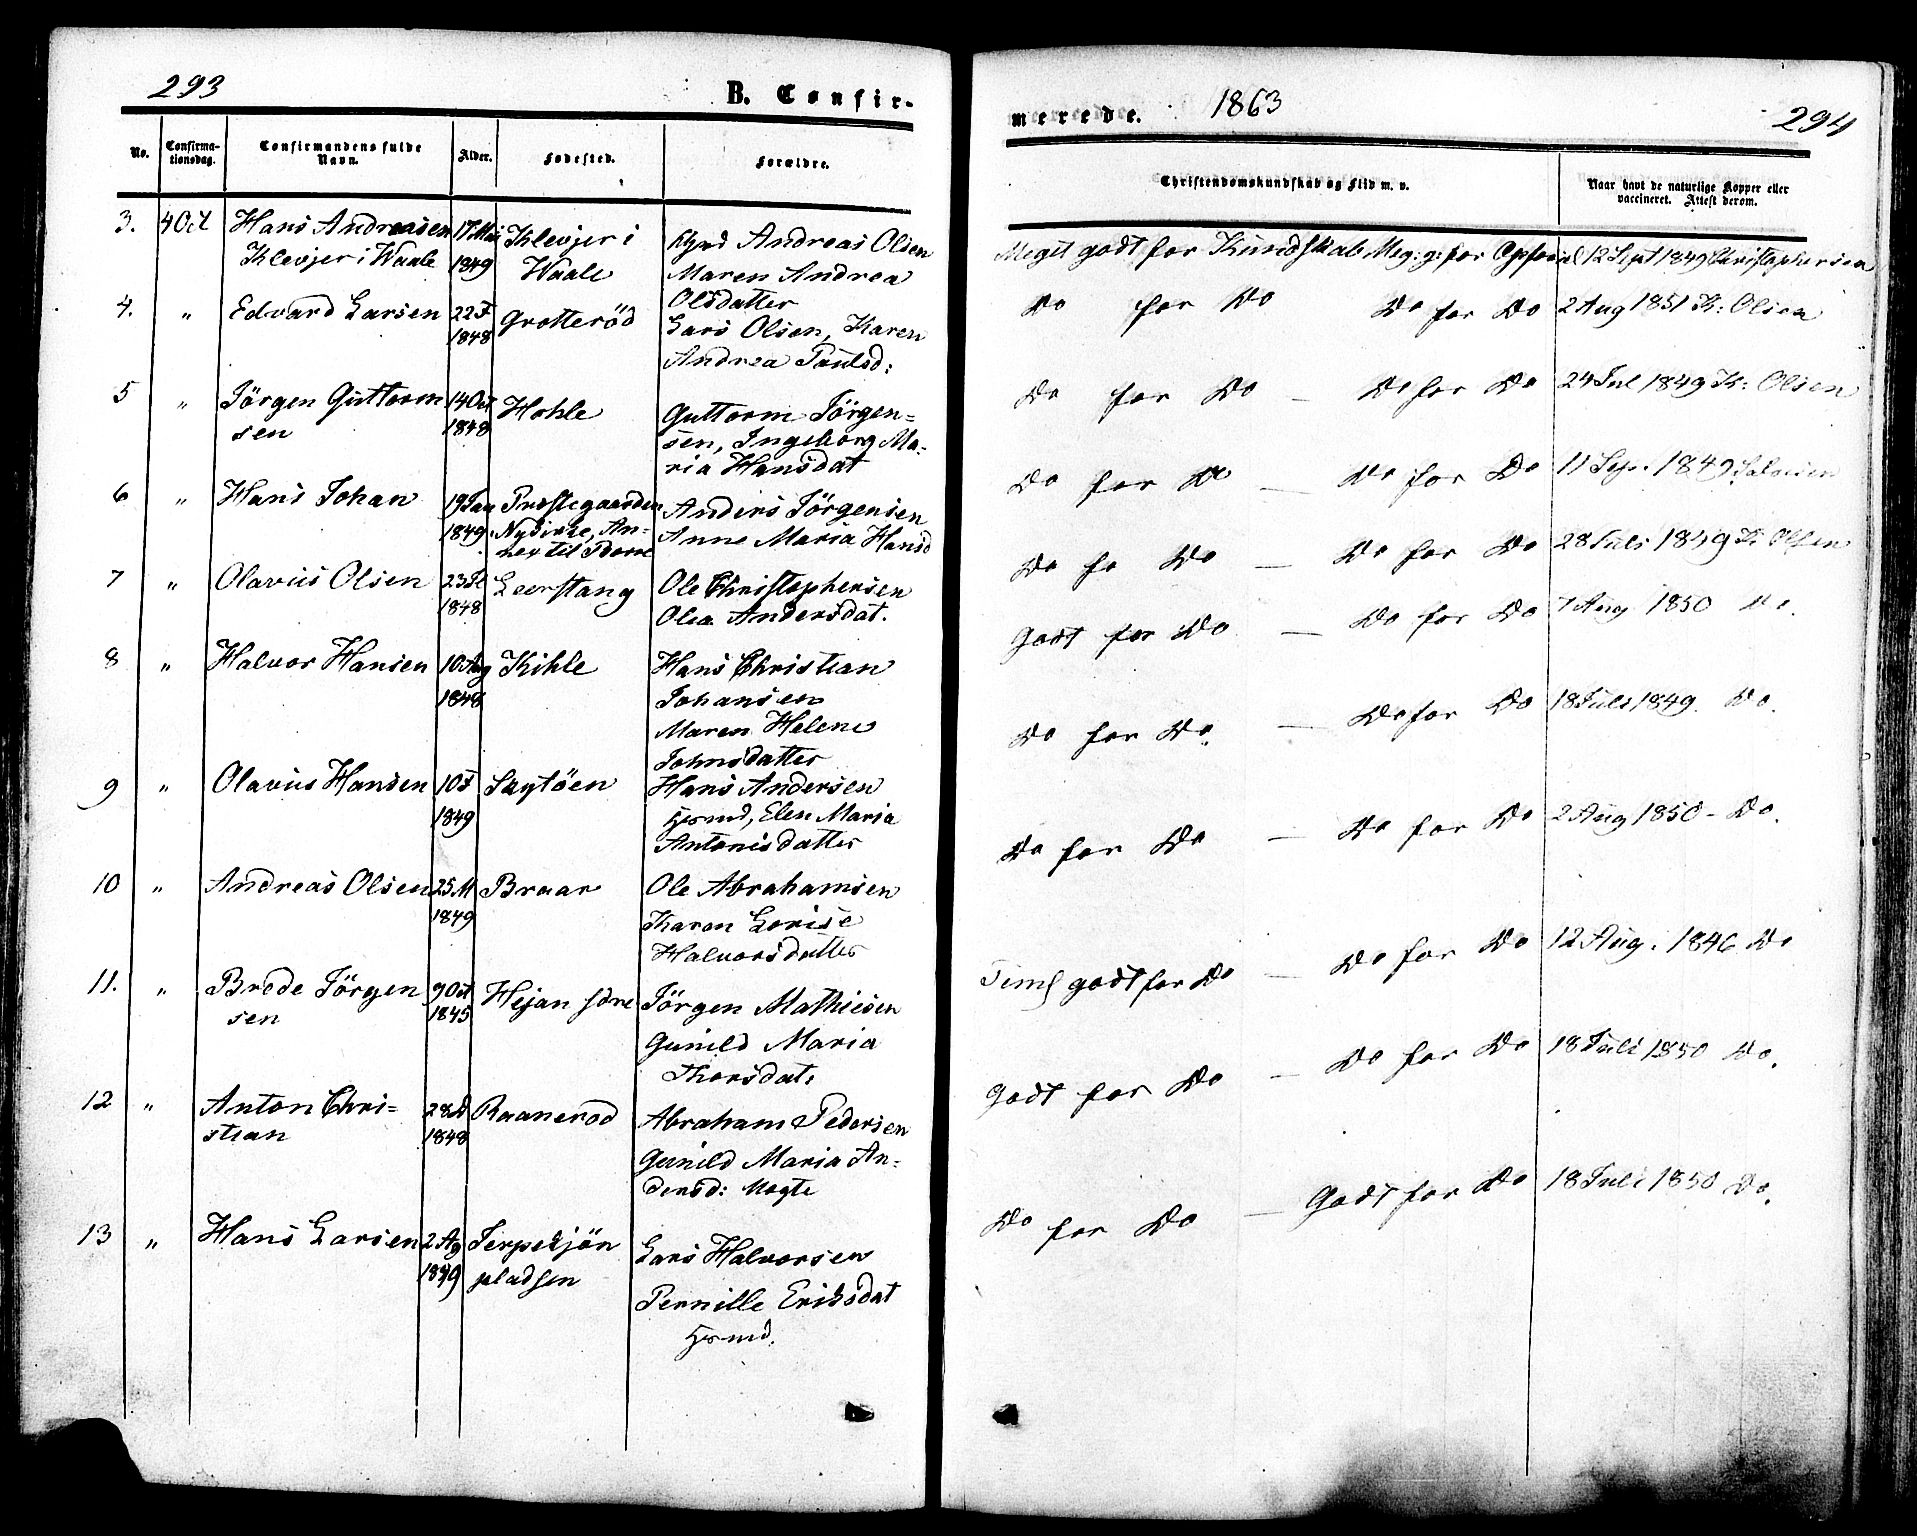 293
B. Confir-
No.
Confirma-
tionsdag.
Confirmandens fulde
Navn.
Alder.
Fødested.
Forældre.
3. 4 Oct Hans Andreasen 17 Mai Klevjer i
Klevjer i Waale 1849 Waale
Andreas Olsen
Maren Andrea
Olsdatter
4. " Edvard Larsen 22 F Grotteröd
1848
Lars Olsen, Karen
Andrea Paulsd:
5 " Jörgen Guttorm 14 Oct Hohle
sen 1848
Guttorm Jörgen=
sen, Ingeborg Ma-
ria Hansdat
6 " Hans Johan 19 Jan Præstegaarden
1849 Nykirke, An-
nex til Borre
Anders Jörgensen
Anne Maria Hansd
7 " Olavus Olsen 23 Leerstang
1848
Ole Christophersen
Olea Andersdat.
8 " Halvor Hansen 10 Aug Kihle
1848
Hans Christian
Johansen
Maren Helene
Johnsdatter
9 " Olavus Hansen 10 F
1849
Hans Andersen
Hsmd, Elen Maria
Antonisdatter
10 " Andreas Olsen 25 M Braar
1849
Ole Abrahamsen
Karen Lovise
Halvorsdatter
11. " Brede Jörgen 9 Oct Hejan
sen 1845
Jörgen Mathiesen
Gunild Maria
Thorsdat:
12 " Anton Chri= 28 D Raanerod
stian 1848
Abraham Pedersen
Gunild Maria An-
dersd:
13 " Hans Larsen 2 Ag
1849 pladsen
Lars Halvorsen
Pernille Eriksdat
Hsmd.
merede. 1863
294
Christendomskundskab og Flid m. v.
Naar havt de naturlige Kopper eller
vaccineret. Attest derom.
Meget godt for Kundskab Meg: g: for Opførsel 12 Sept 1849 Christophersen
Do for Do Do for Do 2 Aug 1851 K: Olsen
Do for Do — Do for Do 24 Jul 1849 K: Olsen
Do for Do — Do for Do 11 Sep. 1849
Do fo Do — Do for Do 28 Juli 1849 K Olsen
Godt for Do — Do for Do 7 Aug 1850 Do.
Do for Do. — Do for Do 18 Juli 1849. Do.
Do for Do — Do for Do 2 Aug 1850 - Do.
Teml godt for Do — Do for Do 12 Aug. 1846 Do
Godt for Do — Do for Do 18 Juli 1850 Do.
Do for Do — Godt for Do 18 Juli 1850 Do.